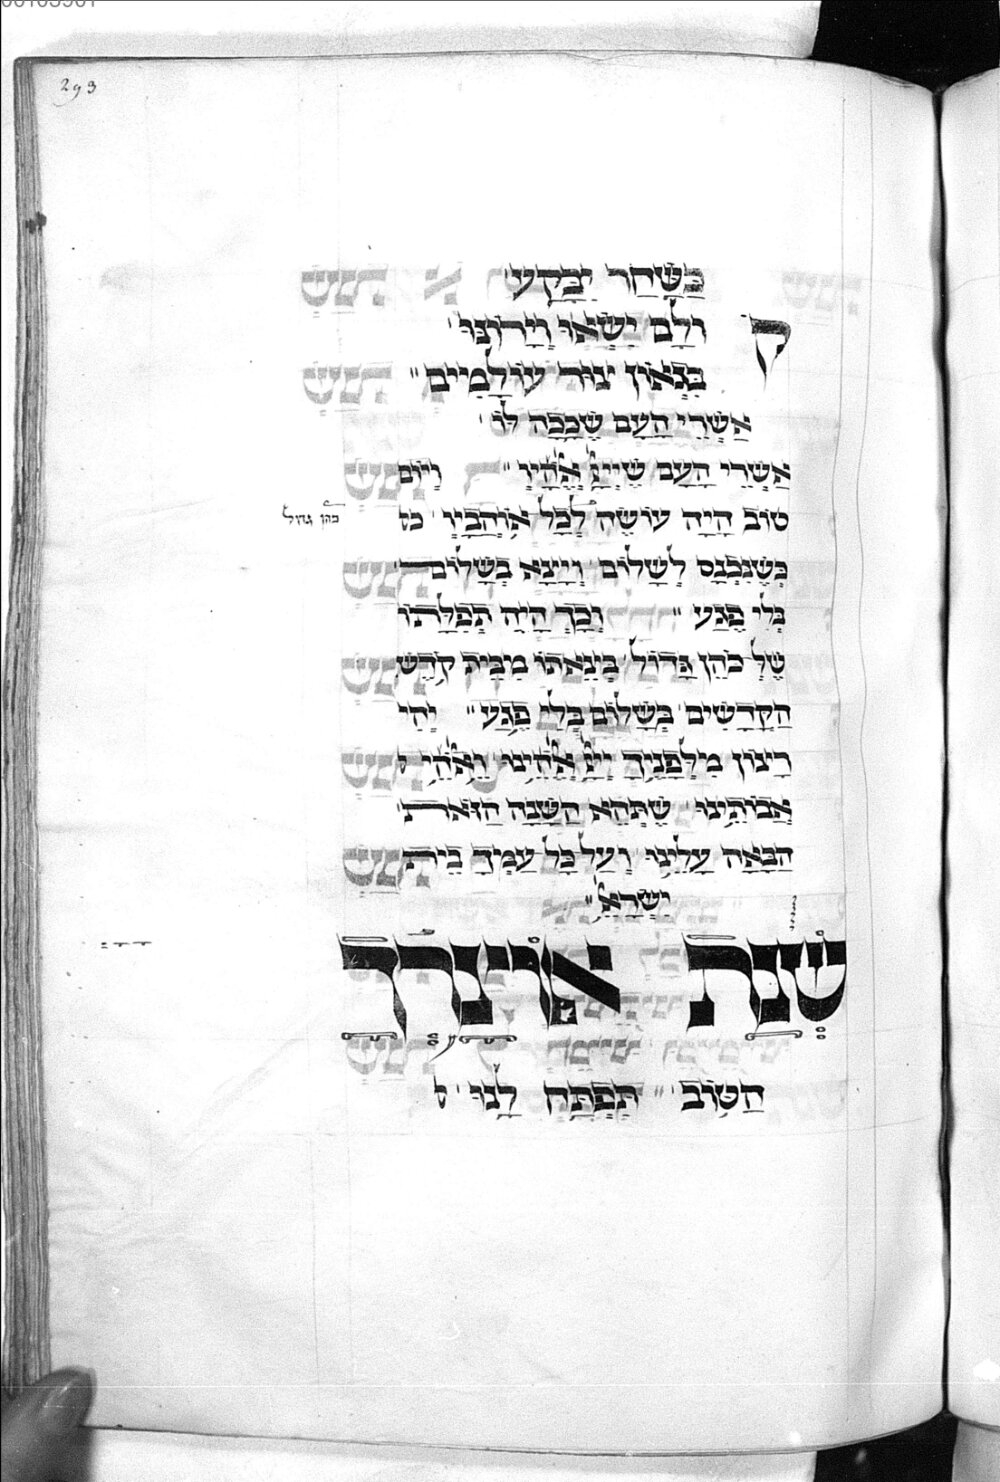 293
כַּשַּׁחַר יִבָּקַע
ק וְלָם יִשְׂאוּ וְיָרוֹנּוּ
בִּגְאוֹן צוּר עוֹלָמִיִים
אַשְׁרֵי הָעָם שֶׁכָּכָה לּוֹ
אַשְׁרֵי הָעָם שֶׁייָ אֱלֹהָיו וְיוֹם
טוֹב הָיָה עוֹשֶׂה לְכָל אוֹהֲבָיו כ
כהן גדול
כְּשֶׁנִּכְנַס לְשָׁלוֹם וְיָצָא בְּשָׁלוֹם
בְּלִי פֶגַע וְכָךְ הָיָה תְפִלָּתוֹ
שֶׁל כֹּהֵן גָּדוֹל בְּצֵאתוֹ מִבֵּית קֹדֶשׁ
הַקֳּדָשִׁים בְּשָׁלוֹם בְּלִי פֶגַע יְהִי
רָצוֹן מִלְּפָנֶיךָ ייָ אֱלֹהֵינוּ וֵאלֹהֵי
אֲבוֹתֵינוּ שֶׁתְּהֵא הַשָּׁנָה הַזֹּאת
הַבָּאָה עָלֵינוּ וְעַל כָּל עַמְּךָ בֵית
יִשְׂרָאֵל
שְׁנַת אוֹצָרְךָ
הַטּוֹב תִּפְתַּח לָנוּ